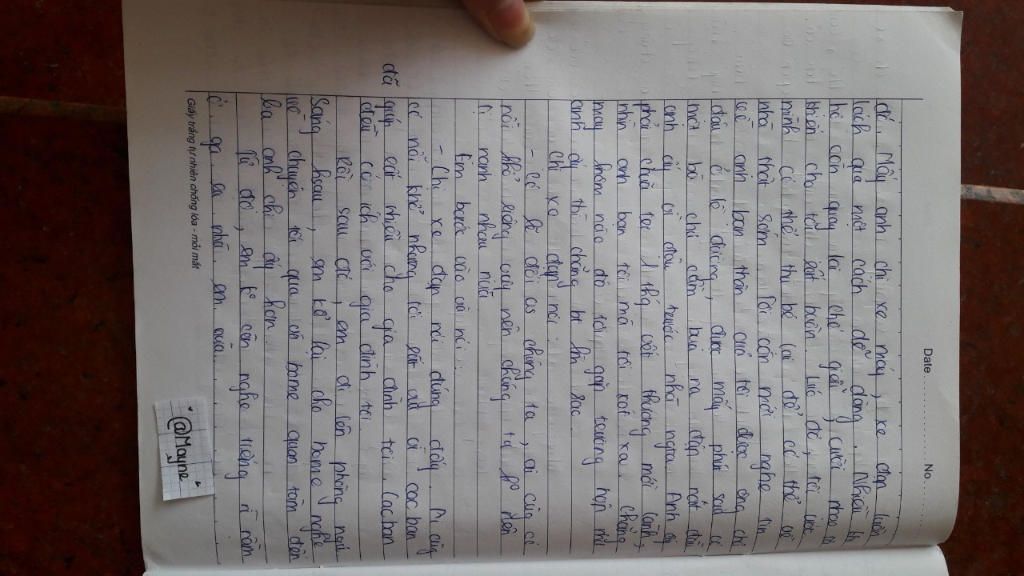 Date ............... No. ..........
đế. Mấy anh chị xe máy, xe đạp luôn
lách qua một cách dễ dàng. Nhiều lú
họ còn quay lại chế giễu, cười nhạo tô
khiến cho tôi rất buồn. Lúc đó, tôi ước
mình có thể thu bé lại để có thể về
nhà thật sớm. Rồi có mới nghe tin
về anh bạn thân của tôi được ông chủ
đậu ở lề đường, được mấy phút sau có
một bà chú cầm búa ra đập nát đầu
anh ấy vì đậu trước nhà người. Anh ấy
phải chữa tới 1 thg vẫn không mới lành,
nhìn anh bạn tôi mà tôi xót xa. Chẳng
may hôm nào đó tôi gặp trường hợp như
anh ấy thì chẳng bt làm sao.
Chị xe đạp nói:
- Có lẽ đời cs chúng ta, ai cũng có
nỗi khổ riêng vậy nên chúng ta ko nên
tị nạnh nhau nữa.
Em bước vào và nói:
- Chị xe đạp nói đúng đấy. Ai cũng
có nỗi khổ nhưng tôi rất vui vì các bạn đã
giúp ích nhiều cho gia đình tôi. Các bạn
đều có ích với gia đình tôi.
Rồi sau đó, em đi lên phòng ngủ.
Sáng hôm sau, em kể lại cho bame nghe
về chuyện tối qua và bame quan tâm đến
ba anh chị ấy hơn.
Từ đó, em ko còn nghe tiếng rì rầm
ở ga ra nhà em nữa.
Giấy trắng tự nhiên chống lóa - mỏi mắt
@Mayne